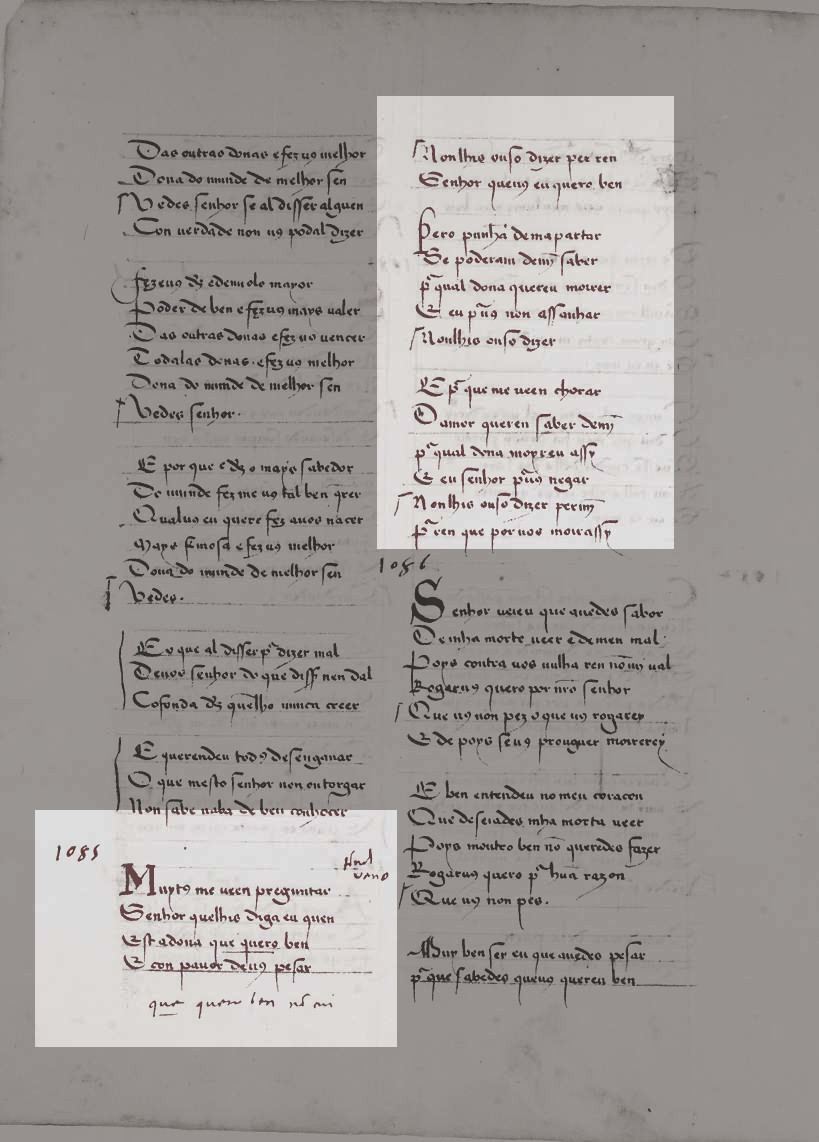 Das outras donas e fez uo melhor
Dona do mundo de melhor sen
Vedes senhor se al disser alguen
Con uerdade non uꝯ podal dizer
fezeuꝯ dꝫ edemolo mayor
Poder de ben e fezuꝯ mays ualer
Das outras donas e fez uꝯ uencer
Todalas donas. efez uꝯ melhor
Dona do mundo de melhor sen
Vedes senhor.
E por que e dꝫ o mays sabedor
De mundo fez me uꝯ tal ben q̄rer
Qualuꝯ eu quero fez auos nacer
Mays fremosa e fez uꝯ melhor
Dona do mundo de melhor sen
Vedes.
E o que al disser p̃ dizer mal
Deuos senhor do que diss̃ nen dal
Cofonda dꝫ quẽlho nunca creer
E querendeu todꝯ desenganar
O que mesto senhor non outorgar
Non sabe nada de ben conhocer
1085
Muytꝯ me ueen preguntar
Senhor quelhis diga eu quen
Est adona que quero ben
E con pauor deuꝯ pesar
que quen ben nõ
Nonlhis ouso dizer per ren
Senhor queuꝯ eu quero ben
Pero punhã demapartar
Se poderam demỹ saber
p̃ qual dona quereu moirer
E eu p̃uꝯ non assanhar
Nonlhis ouso dizer
E p̃ que me ueen chorar
Damor queren saber demỹ
p̃ qual dona moyreu assy
E eu senhor p̃uꝯ negar
Nonlhis ouso dizer permỹ
p̃ ren que por uos moirassy
1086
Senhor ueieu que auedes sabor
De mha morte ueer e demeu mal
Poys contra uos nulha ren nõmi ual
Rogaruꝯ quero por nr̃o senhor
Que uꝯ non pez o que uꝯ rogarey
E de poys seuꝯ prouguer moirerey
E ben entendeu no meu coraçon
Que deseiades mha morta ueer
Poys moutro ben nõ queredes fazer
Rogaruꝯ quero p̃ hũa razon
Que uꝯ non pes.
Muy ben ser eu que auedes pesar
p̃ que sabedes queuꝯ quereu ben